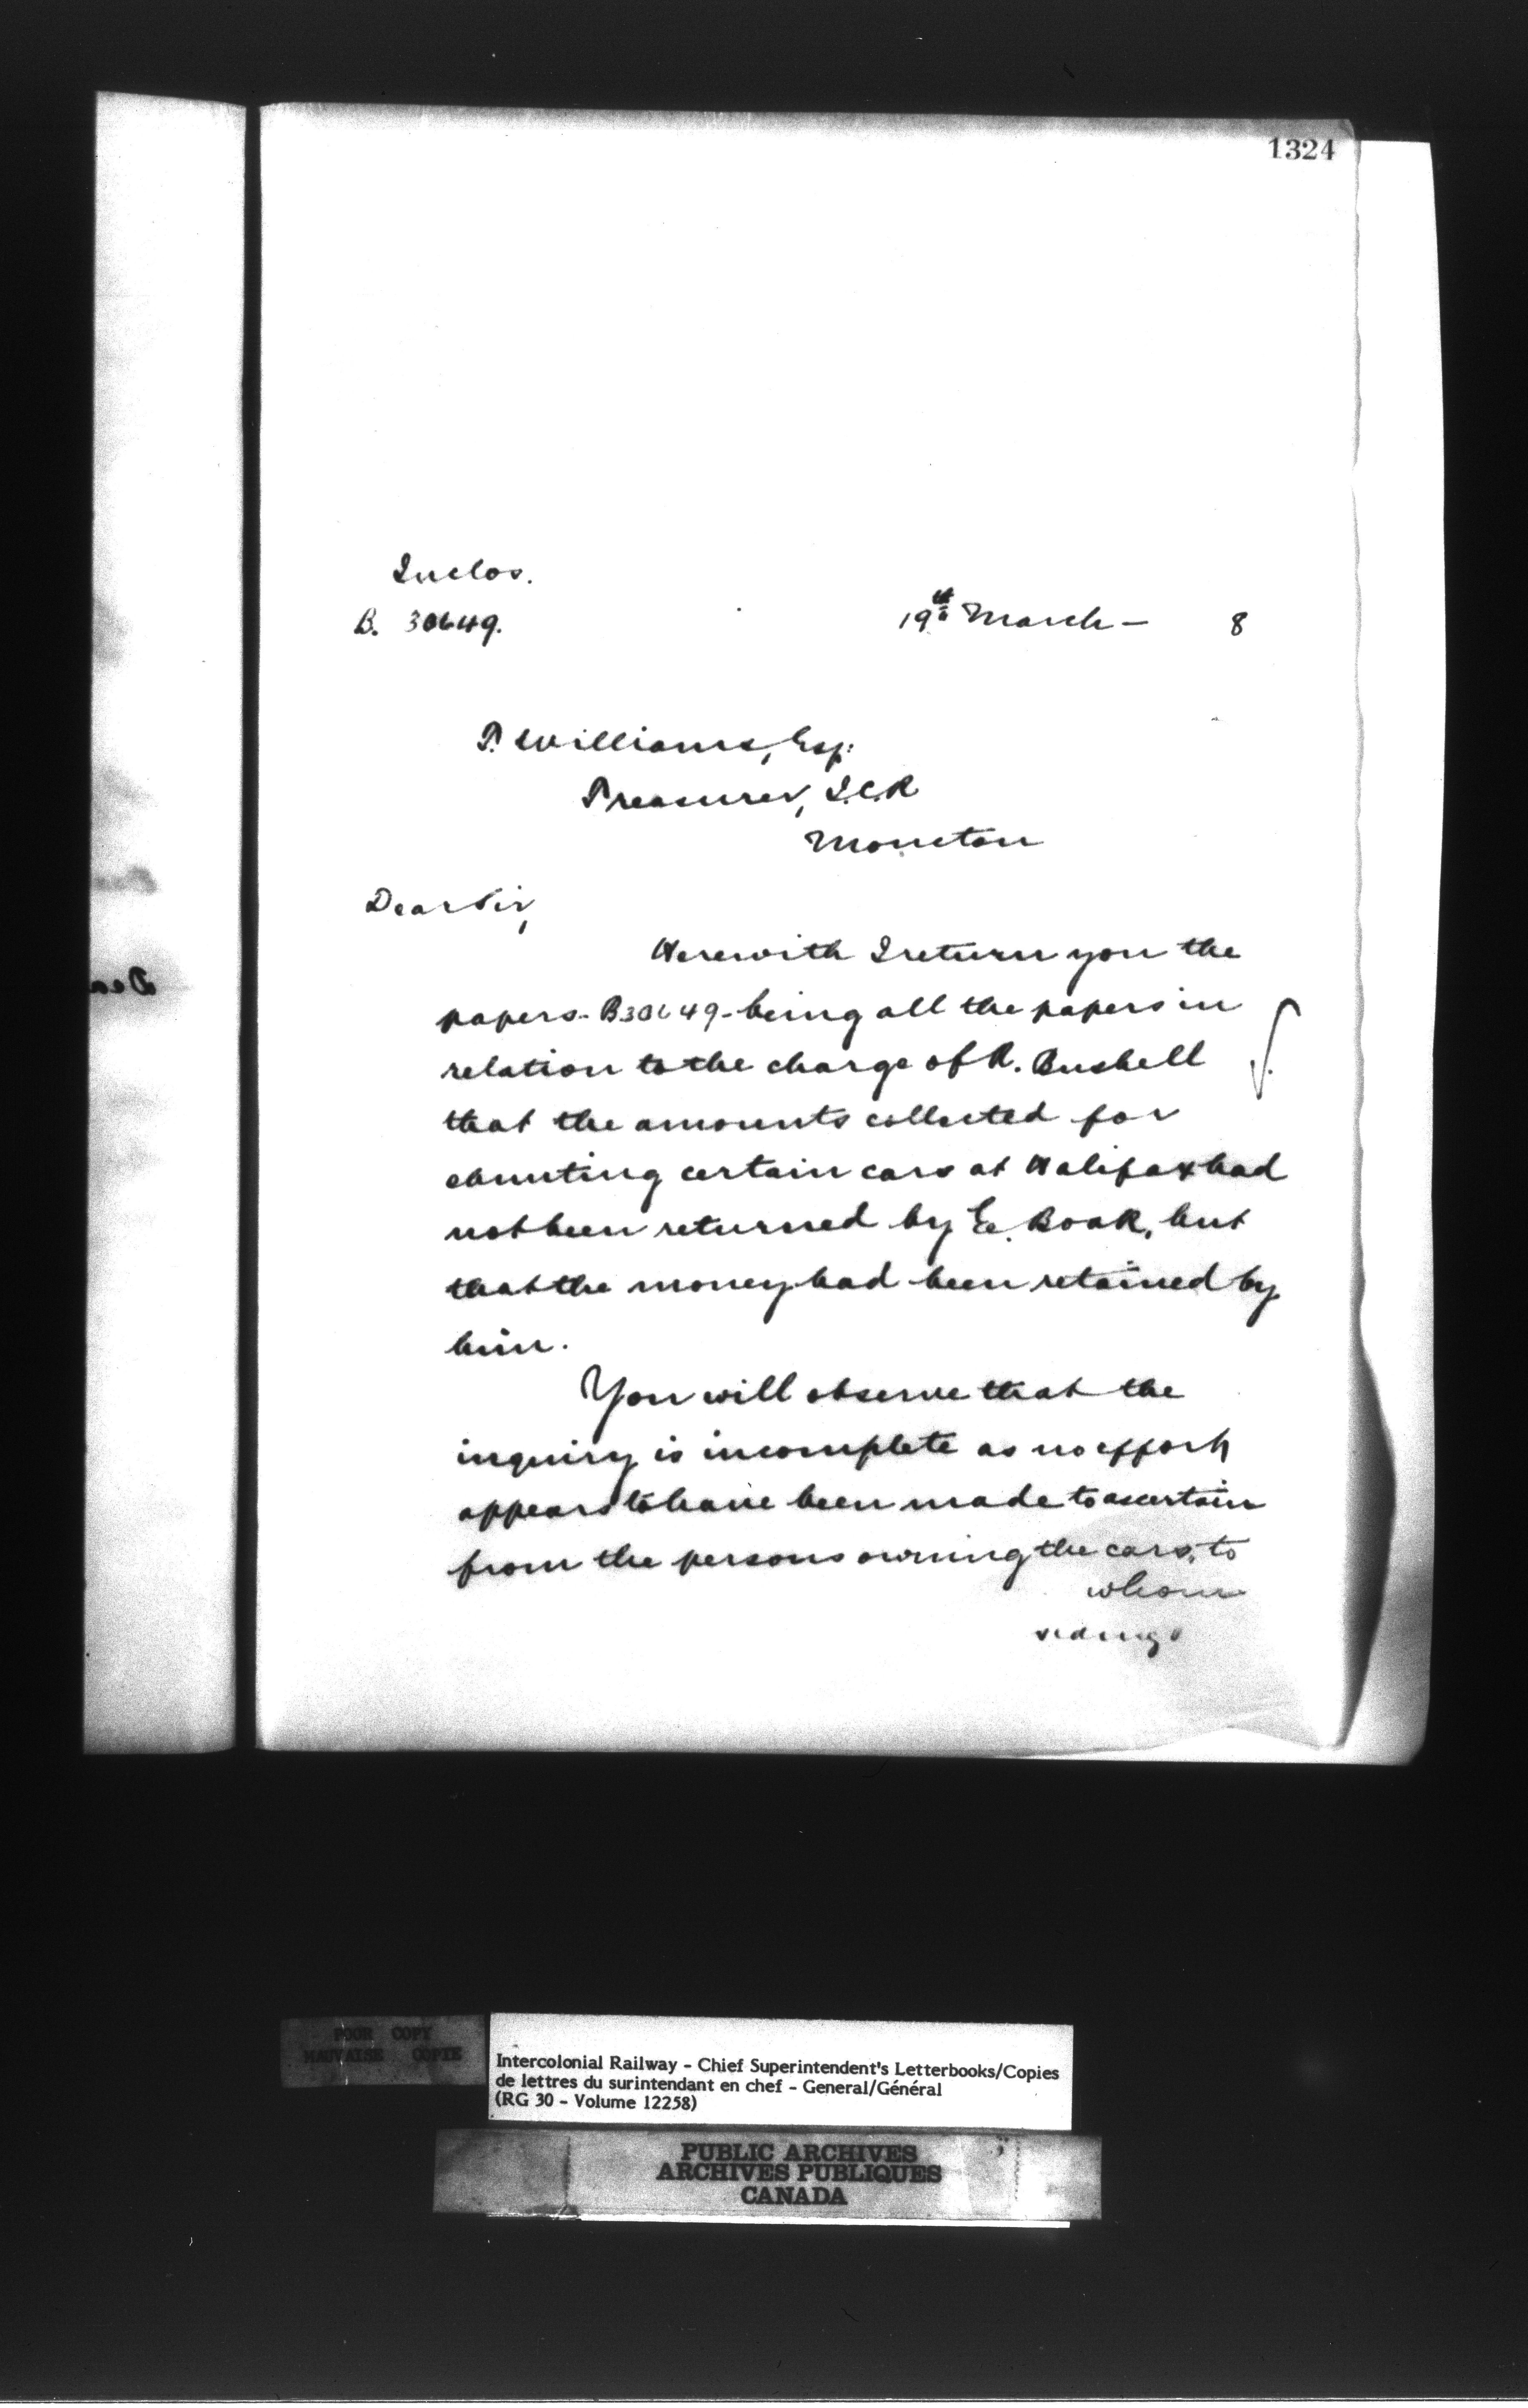 1324
Inclos.
B. 30649.
19th March — 8
T. Williams, Esq:
Treasurer, I.C.R
Moncton
Dear Sir,
Herewith I return you the
papers - B30649 - being all the papers in
relation to the charge of R. Bushell
that the amounts collected for
shunting certain cars at Halifax had
not been returned by E. Boak, but
that the money had been retained by
him.
You will observe that the
inquiry is incomplete as no effort
appears to have been made to ascertain
from the persons owning the cars, to
whom
Dea
POOR COPY
MAUVAISE COPIE
Intercolonial Railway - Chief Superintendent's Letterbooks/Copies
de lettres du surintendant en chef - General/Général
(RG 30 - Volume 12258)
PUBLIC ARCHIVES
ARCHIVES PUBLIQUES
CANADA